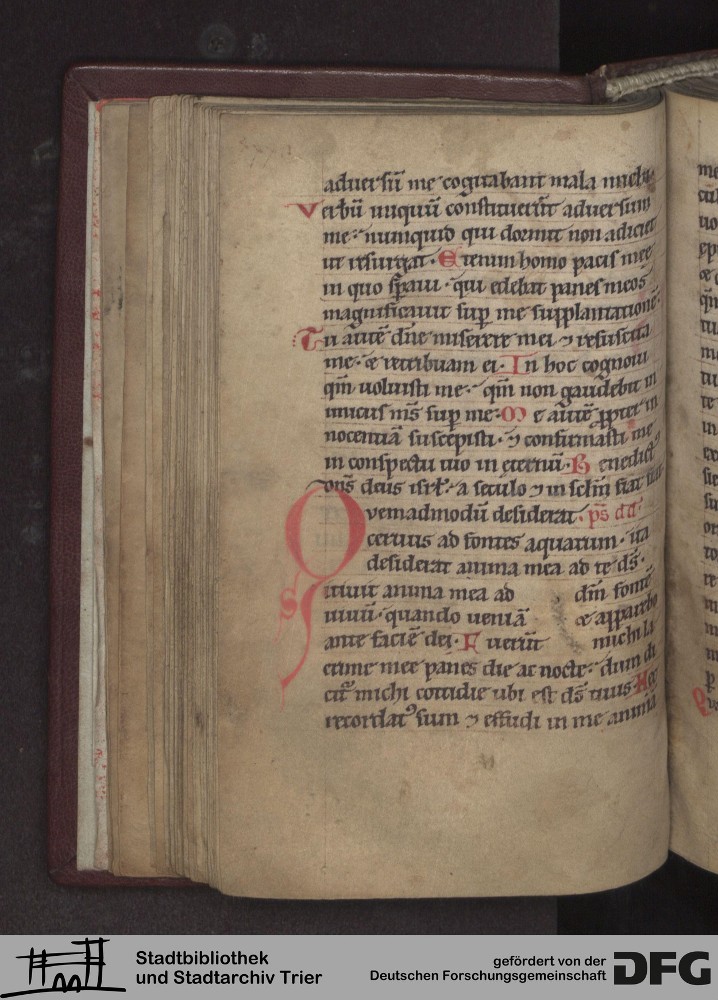 aduersū me cogitabant mala michi·
Verbū iniquū constituerūt aduersum
me· numquid qui dormit non adiciet
ut resurgat· Etenim homo pacis mee
in quo sꝑaui· qui edebat panes meos
magnificauit suꝑ me supplantationē·
Tu autē dn̄e miserere mei ⁊ resuscita
me· & retribuam ei· In hoc cognoui
qm̄ uoluisti me· qm̄ non gaudebit in
imicus m̄s suꝑ me· Me autē ꝓpter in
nocentiā suscepisti· ⁊ confirmasti me
in conspectu tuo in eternū· Benedictꝰ
dn̄s deus isrł· a seculo ⁊ in sclm̄ fiat fiat
Quemadmodū desiderat· ps̄ dd̄
ceruus ad fontes aquarum· ita
desiderat anima mea ad te ds̄·
Sitiuit anima mea ad dm̄ fontē
uiuū· quando ueniā & apparebo
ante faciē dei· Fuerūt michi la
crime mee panes die ac nocte· dum di
citꝰ michi cottidie ubi est ds̄ tuus· Hec
recordatꝰ sum ⁊ effudi in me anima
Stadtbibliothek
und Stadtarchiv Trier
gefördert von der
Deutschen Forschungsgemeinschaft
DFG